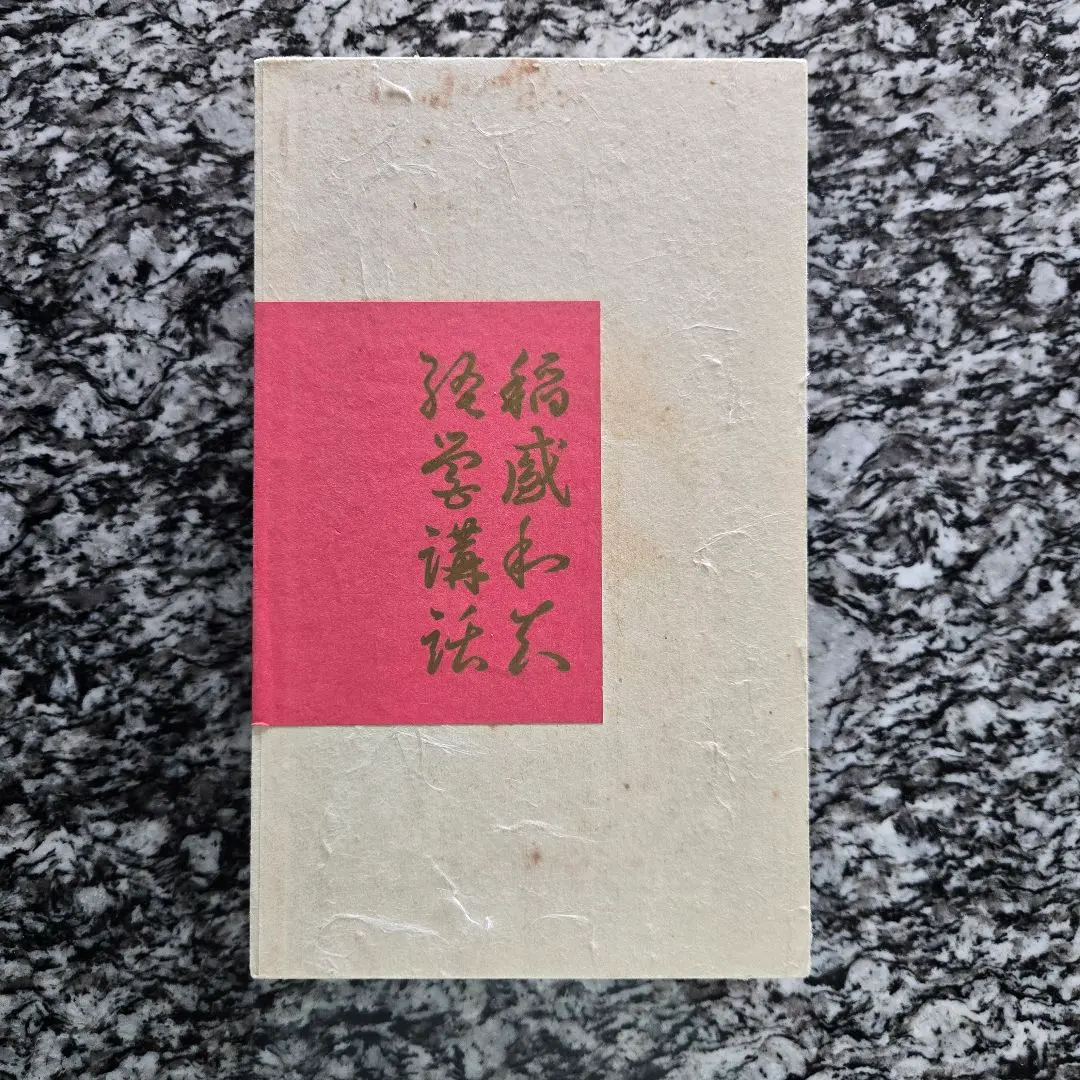 稲盛和夫
経営講話